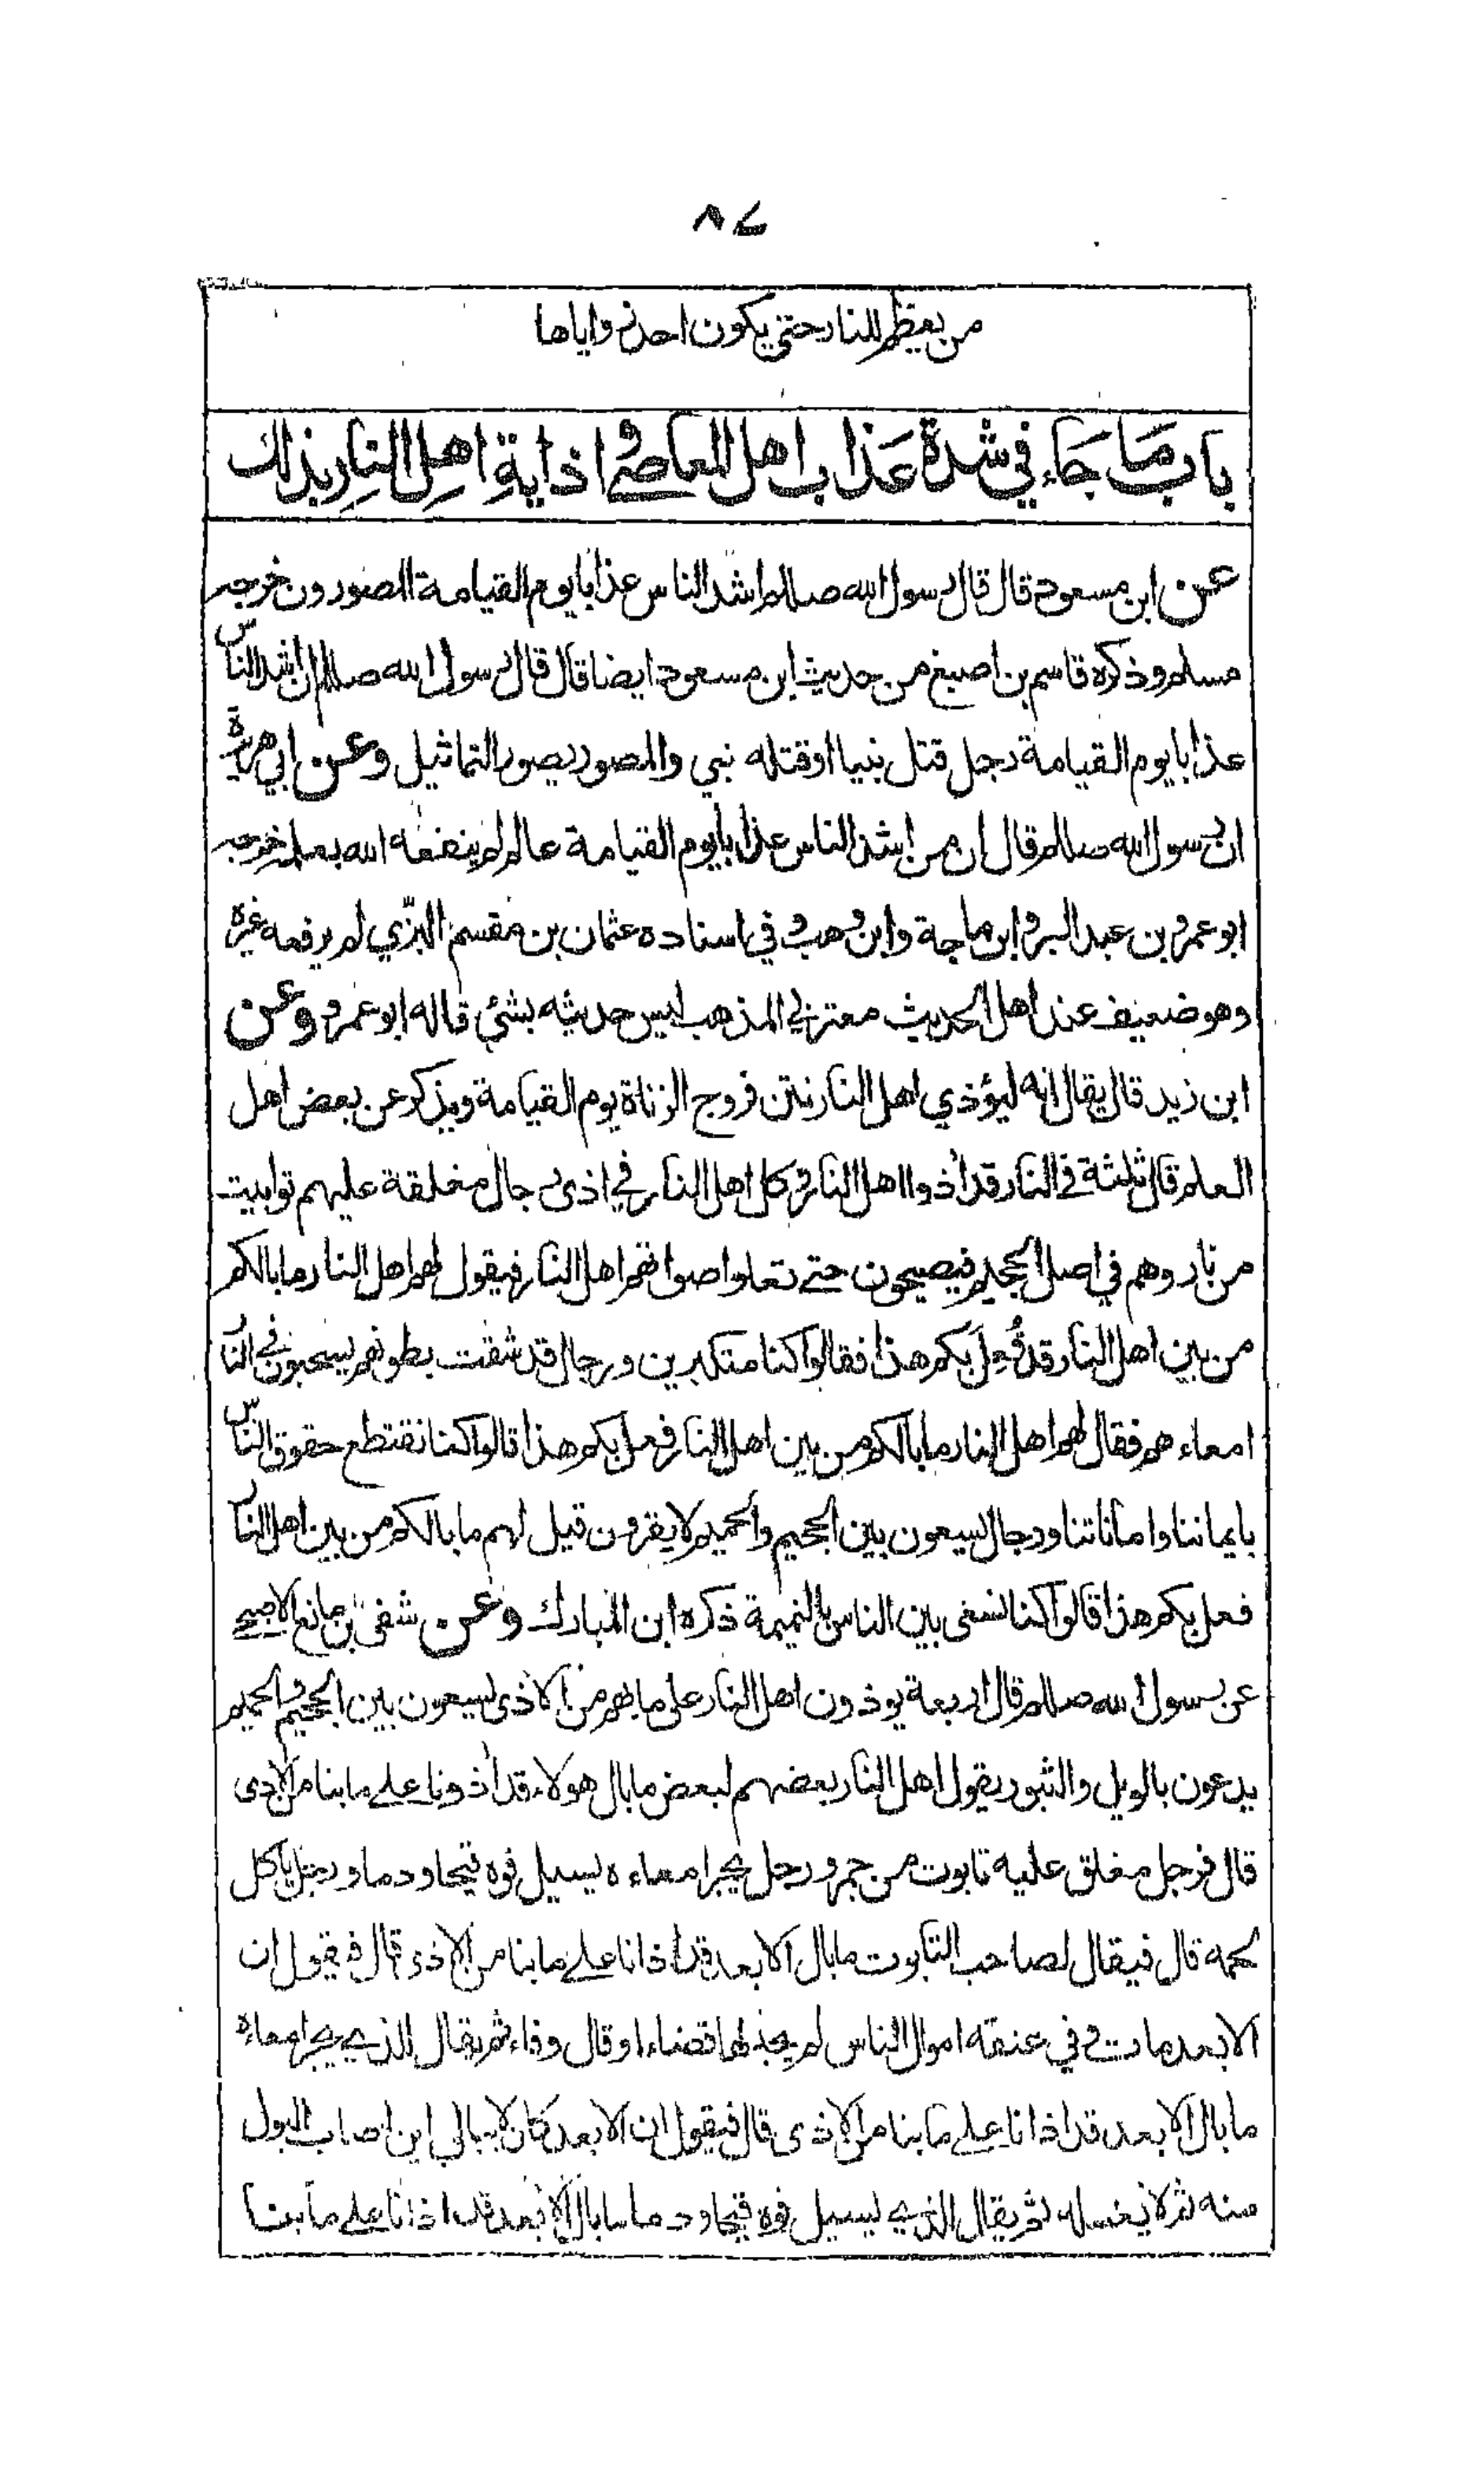 ٨٤
من يعظم للنار حتى يكون احد زواياها
باب ما جاء في شدة عذاب اهل المعاصي و اذاية اهل النار بذلك
عن ابن مسعود قال قال رسول الله صللم اشد الناس عذابا يوم القيامة المصورون خرجه
مسلم وذكره قاسم بن اصبغ من حديث ابن مسعود ايضا قال قال رسول الله صللم ان اشد الناس
عذابا يوم القيامة رجل قتل نبيا او قتله نبي والمصور يصور التماثيل وعن ابي هريرة
ان رسول الله صللم قال ان من اشد الناس عذابا يوم القيامة عالم لم ينفعه الله بعلمه خرجه
ابو عمرو بن عبد البر وابن ماجة وابن وهب وفي اسناده عثمان بن مقسم البزي لم يرفعه غيره
وهو ضعيف عند اهل الحديث معتزلي المذهب ليس حديثه بشئي قاله ابو عمرو وعن
ابن زيد قال يقال انه ليؤذي اهل النار نتن فروج الزناة يوم القيامة ويذكر عن بعض اهل
العلم قال ثلثة في النار قد أذوا اهل النار وكل اهل النار في اذى رجال مغلقة عليهم توابيت
من نار وهم في اصل الجحيم فيصيحون حتى تعلوا صواتهم اهل النار فيقول لهم اهل النار ما بالكم
من بين اهل النار قد فُعِلَ بكم هذا فقالوا كنا متكبرين ورجال قد شقت بطونهم يسحبون في النار
امعاء هم فقال لهم اهل النار ما بالكم من بين اهل النار فعل بكم هذا قالوا كنا نقتطع حقوق الناس
بايماننا وامأناتنا ورجال يسعون بين الجحيم والحميم لا يقرون قيل لهم ما بالكم من بين اهل النار
فعل بكم هذا قالوا كنا نسعى بين الناس بالنميمة ذكره ابن المبارك وعن شفى بن مانع الاصبحي
عن رسول الله صللم قال اربعة يوذون اهل النار على ما بهم من الاذى يسعون بين الجحيم والحميم
يدعون بالويل والثبور يقول اهل النار بعضهم لبعض ما بال هولاء قد أذونا على ما بنا من الاذى
قال فرجل مغلق عليه تابوت من جمر ورجل يجر امعاءه يسيل فوه قيحا و دما و رجل ياكل
لحمه قال فيقال لصاحب التابوت ما بال الابعد قد اذانا على ما بنا من الاذى قال فيقول ان
الابعد مات وفي عنقه اموال الناس لم يجد لها قضاء او قال وفاء ثم يقال للذي يجر امعاءه
ما بال الابعد قد اذانا على ما بنا من الاذى قال فيقول ان الابعد كان لا يبالي اين اصاب البول
منه ثم لا يغسله ثم يقال للذي يسيل فوه قيحا ودما ما بال الابعد قد اذانا على ما بنا